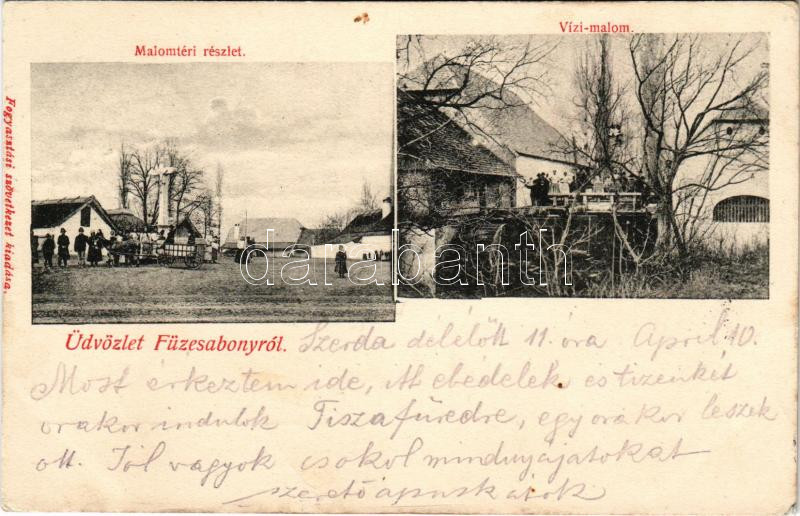 Vízi-malom.
Malomtéri részlet.
Fogyasztási szövetkezet kiadása.
darabanth
Üdvözlet Füzesabonyról. Szerda délélőtt 11. óra April 10.
Most érkeztem ide, itt ebédelek és tizenkét
orakor indulok Tiszafüredre, egy orakor leszek
ott. Jól vagyok csokol mindnyajatokat
szerető apuskátok